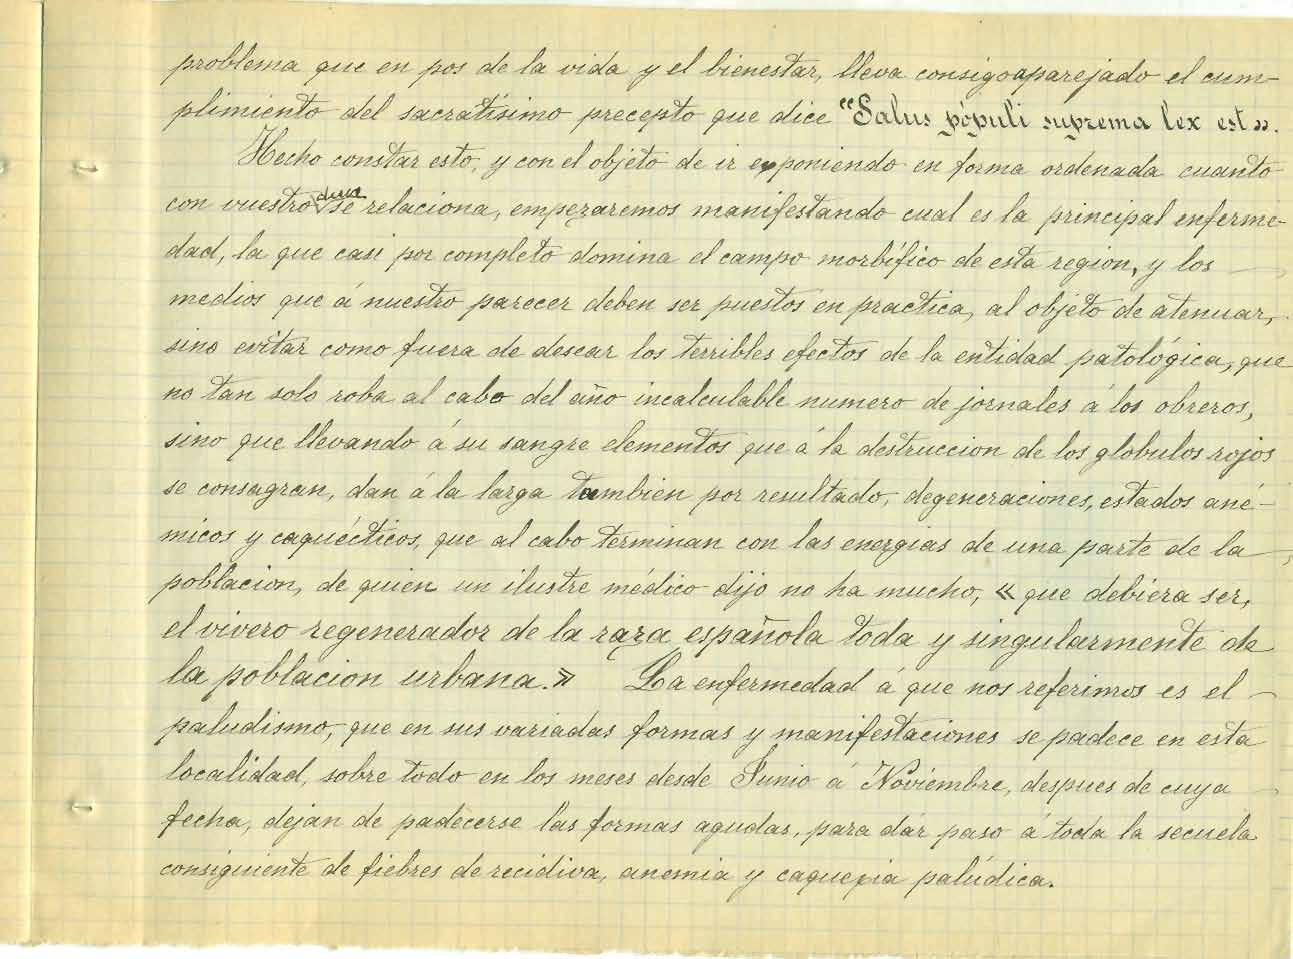 problema que en pos de la vida y el bienestar, lleva consigo aparejado el cum-
plimiento del sacratísimo precepto que dice "Salus pópuli suprema lex est».
Hecho constar esto, y con el objeto de ir exponiendo en forma ordenada cuanto
con vuestro se relaciona, empezaremos manifestando cual es la principal enferme-
dad, la que casi por completo domina el campo morbífico de esta region, y los
medios que á nuestro parecer deben ser puestos en practica, al objeto de atenuar,
sino evitar como fuera de desear los terribles efectos de la entidad patológica, que
no tan solo roba al cabo del año incalculable numero de jornales á los obreros,
sino que llevando á su sangre elementos que á la destruccion de los globulos rojos
se consagran, dan á la larga tambien por resultado, degeneraciones, estados ané-
micos y caquécticos, que al cabo terminan con las energias de una parte de la
poblacion, de quien un ilustre médico dijo no ha mucho, « que debiera ser,
el vivero regenerador de la raza española toda y singularmente de
la poblacion urbana.» La enfermedad á que nos referimos es el
paludismo, que en sus variadas formas y manifestaciones se padece en esta
localidad, sobre todo en los meses desde Junio á Noviembre, despues de cuya
fecha, dejan de padecerse las formas agudas, para dar paso á toda la secuela
consiguiente de fiebres de recidiva, anemia y caquexia palúdica.